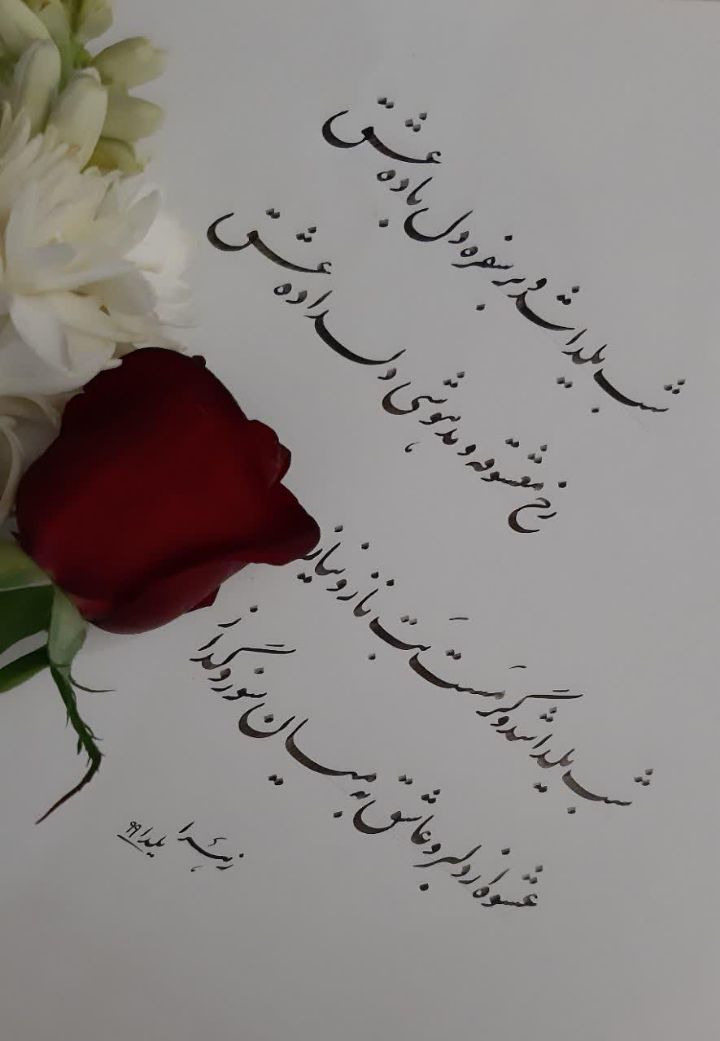 شب یلدا شد و بر سفره دل باده عشق
رخ معشوقه و مدهوشی دلداده عشق
شب یلدا شد و گرمست بت ناز و نیاز
عشوه از دلبر و عاشق به میان سوز و گداز
زهرا یلدا ۹۹